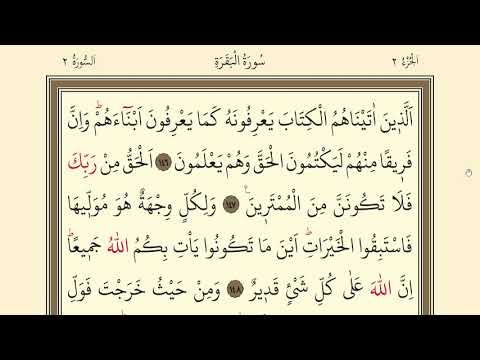 اَلْجُزْءُ ٢
سُورَةُ الْبَقَرَةِ
اَلسُّورَةُ ٢
اَلَّذ۪ينَ اٰتَيْنَاهُمُ الْكِتَابَ يَعْرِفُونَهُ كَمَا يَعْرِفُونَ اَبْنَٓاءَهُمْۜ وَاِنَّ
فَر۪يقًا مِنْهُمْ لَيَكْتُمُونَ الْحَقَّ وَهُمْ يَعْلَمُونَ ﴿١٤٦﴾ اَلْحَقُّ مِنْ رَبِّكَ
فَلَا تَكُونَنَّ مِنَ الْمُمْتَر۪ينَ۟ ﴿١٤٧﴾ وَلِكُلٍّ وِجْهَةٌ هُوَ مُوَلّ۪يهَا
فَاسْتَبِقُوا الْخَيْرَاتِۜ اَيْنَ مَا تَكُونُوا يَأْتِ بِكُمُ اللّٰهُ جَم۪يعًاۜ
اِنَّ اللّٰهَ عَلٰى كُلِّ شَيْءٍ قَد۪يرٌ ﴿١٤٨﴾ وَمِنْ حَيْثُ خَرَجْتَ فَوَلِّ